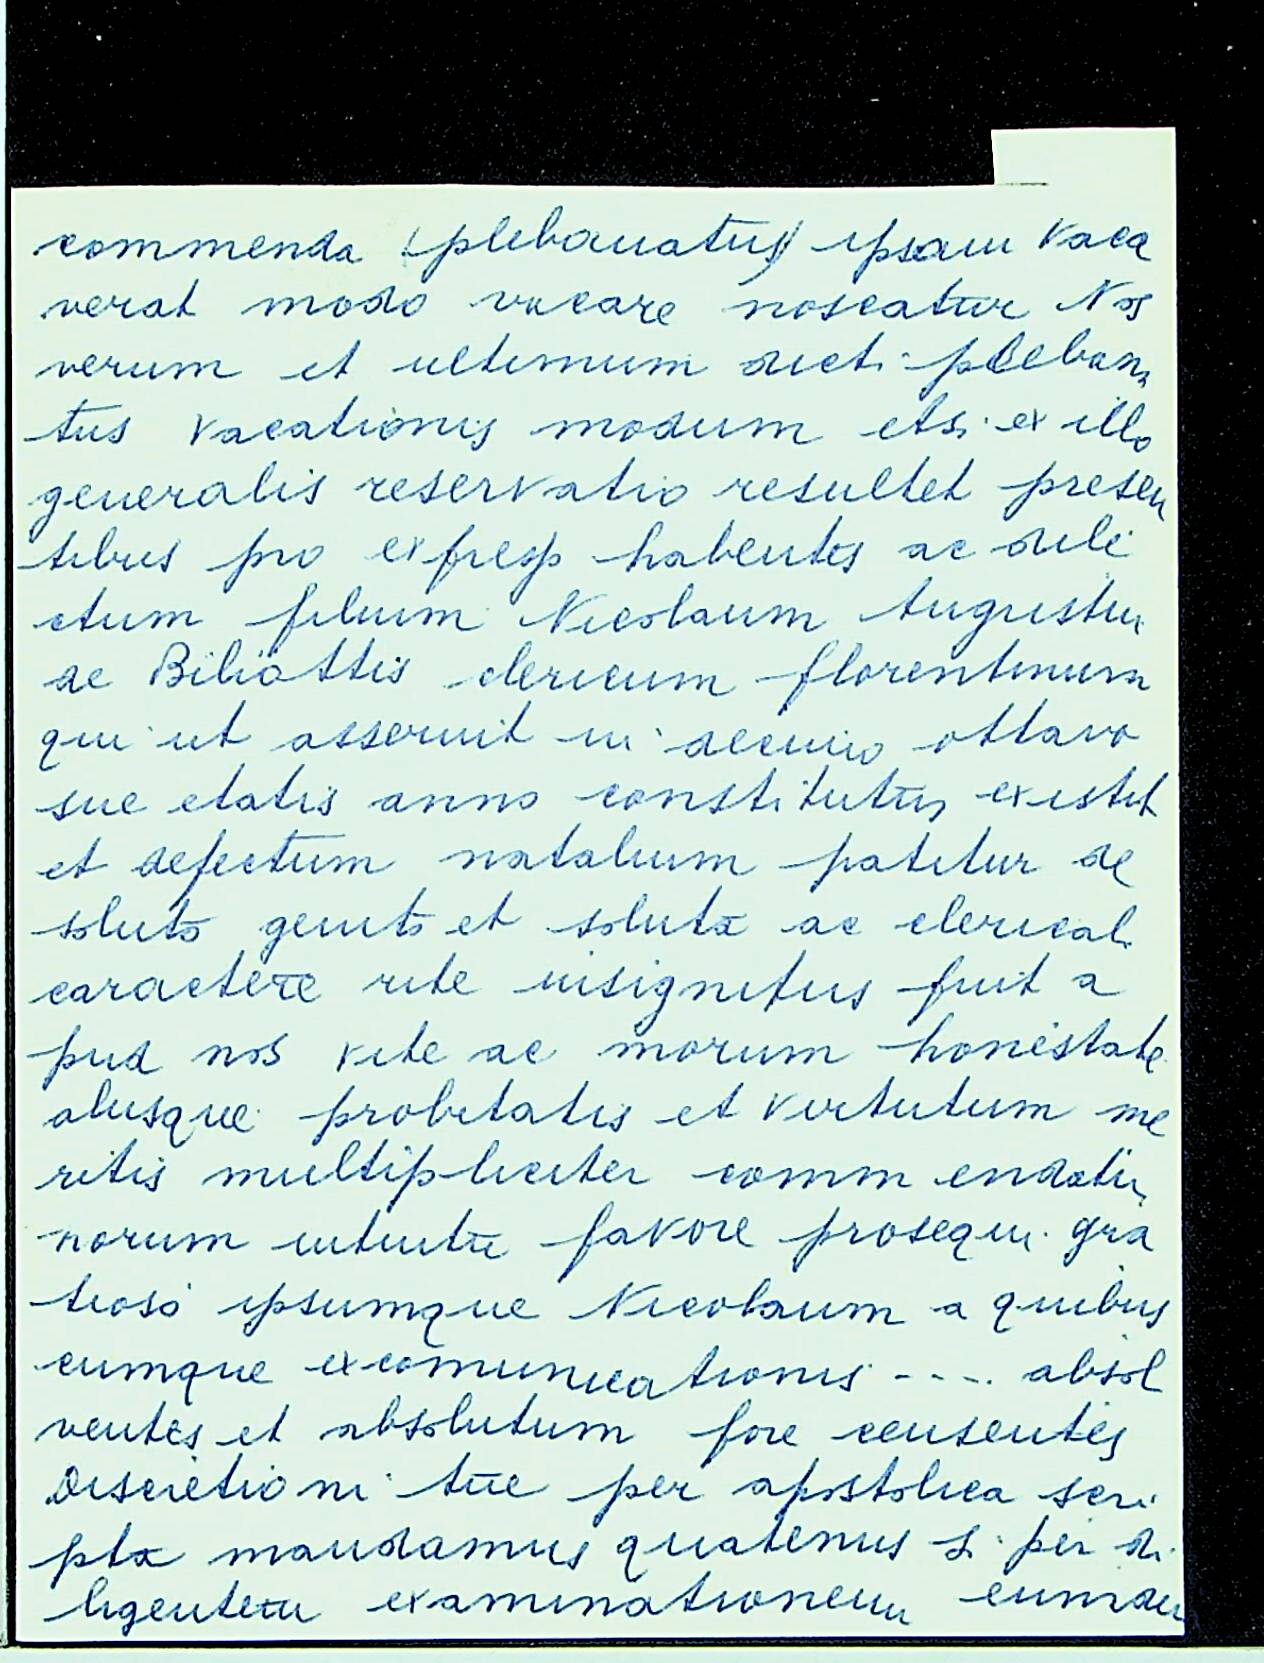 commenda (plebanatus) ipsam vaca
verat modo vacare noscatur Nos
verum et ultimum dicti pleban
tus vacationis modum etsi ex illo
generalis reservatio resultet presen
tibus pro expresso habentes ac dile
ctum filium Nicolaum Augustin
de Biliottis clericum florentinum
qui ut asseruit in decimo ottavo
sue etatis anno constitutus existit
et defectum natalium patitur de
soluto genito et soluta ac clericali
caractere rite insignitus fuit a
pud nos vite ac morum honestate
aliisque probitatis et virtutum me
ritis multipliciter commendatum
horum intuitu favore prosequi gra
tioso ipsumque Nicolaum a quibus
cumque excomunicationis .... absol
ventes et absolutum fore censentes
Discretioni tue per apostolica scri
pta mandamus quatenus si per di
ligentem examinationem eumdem